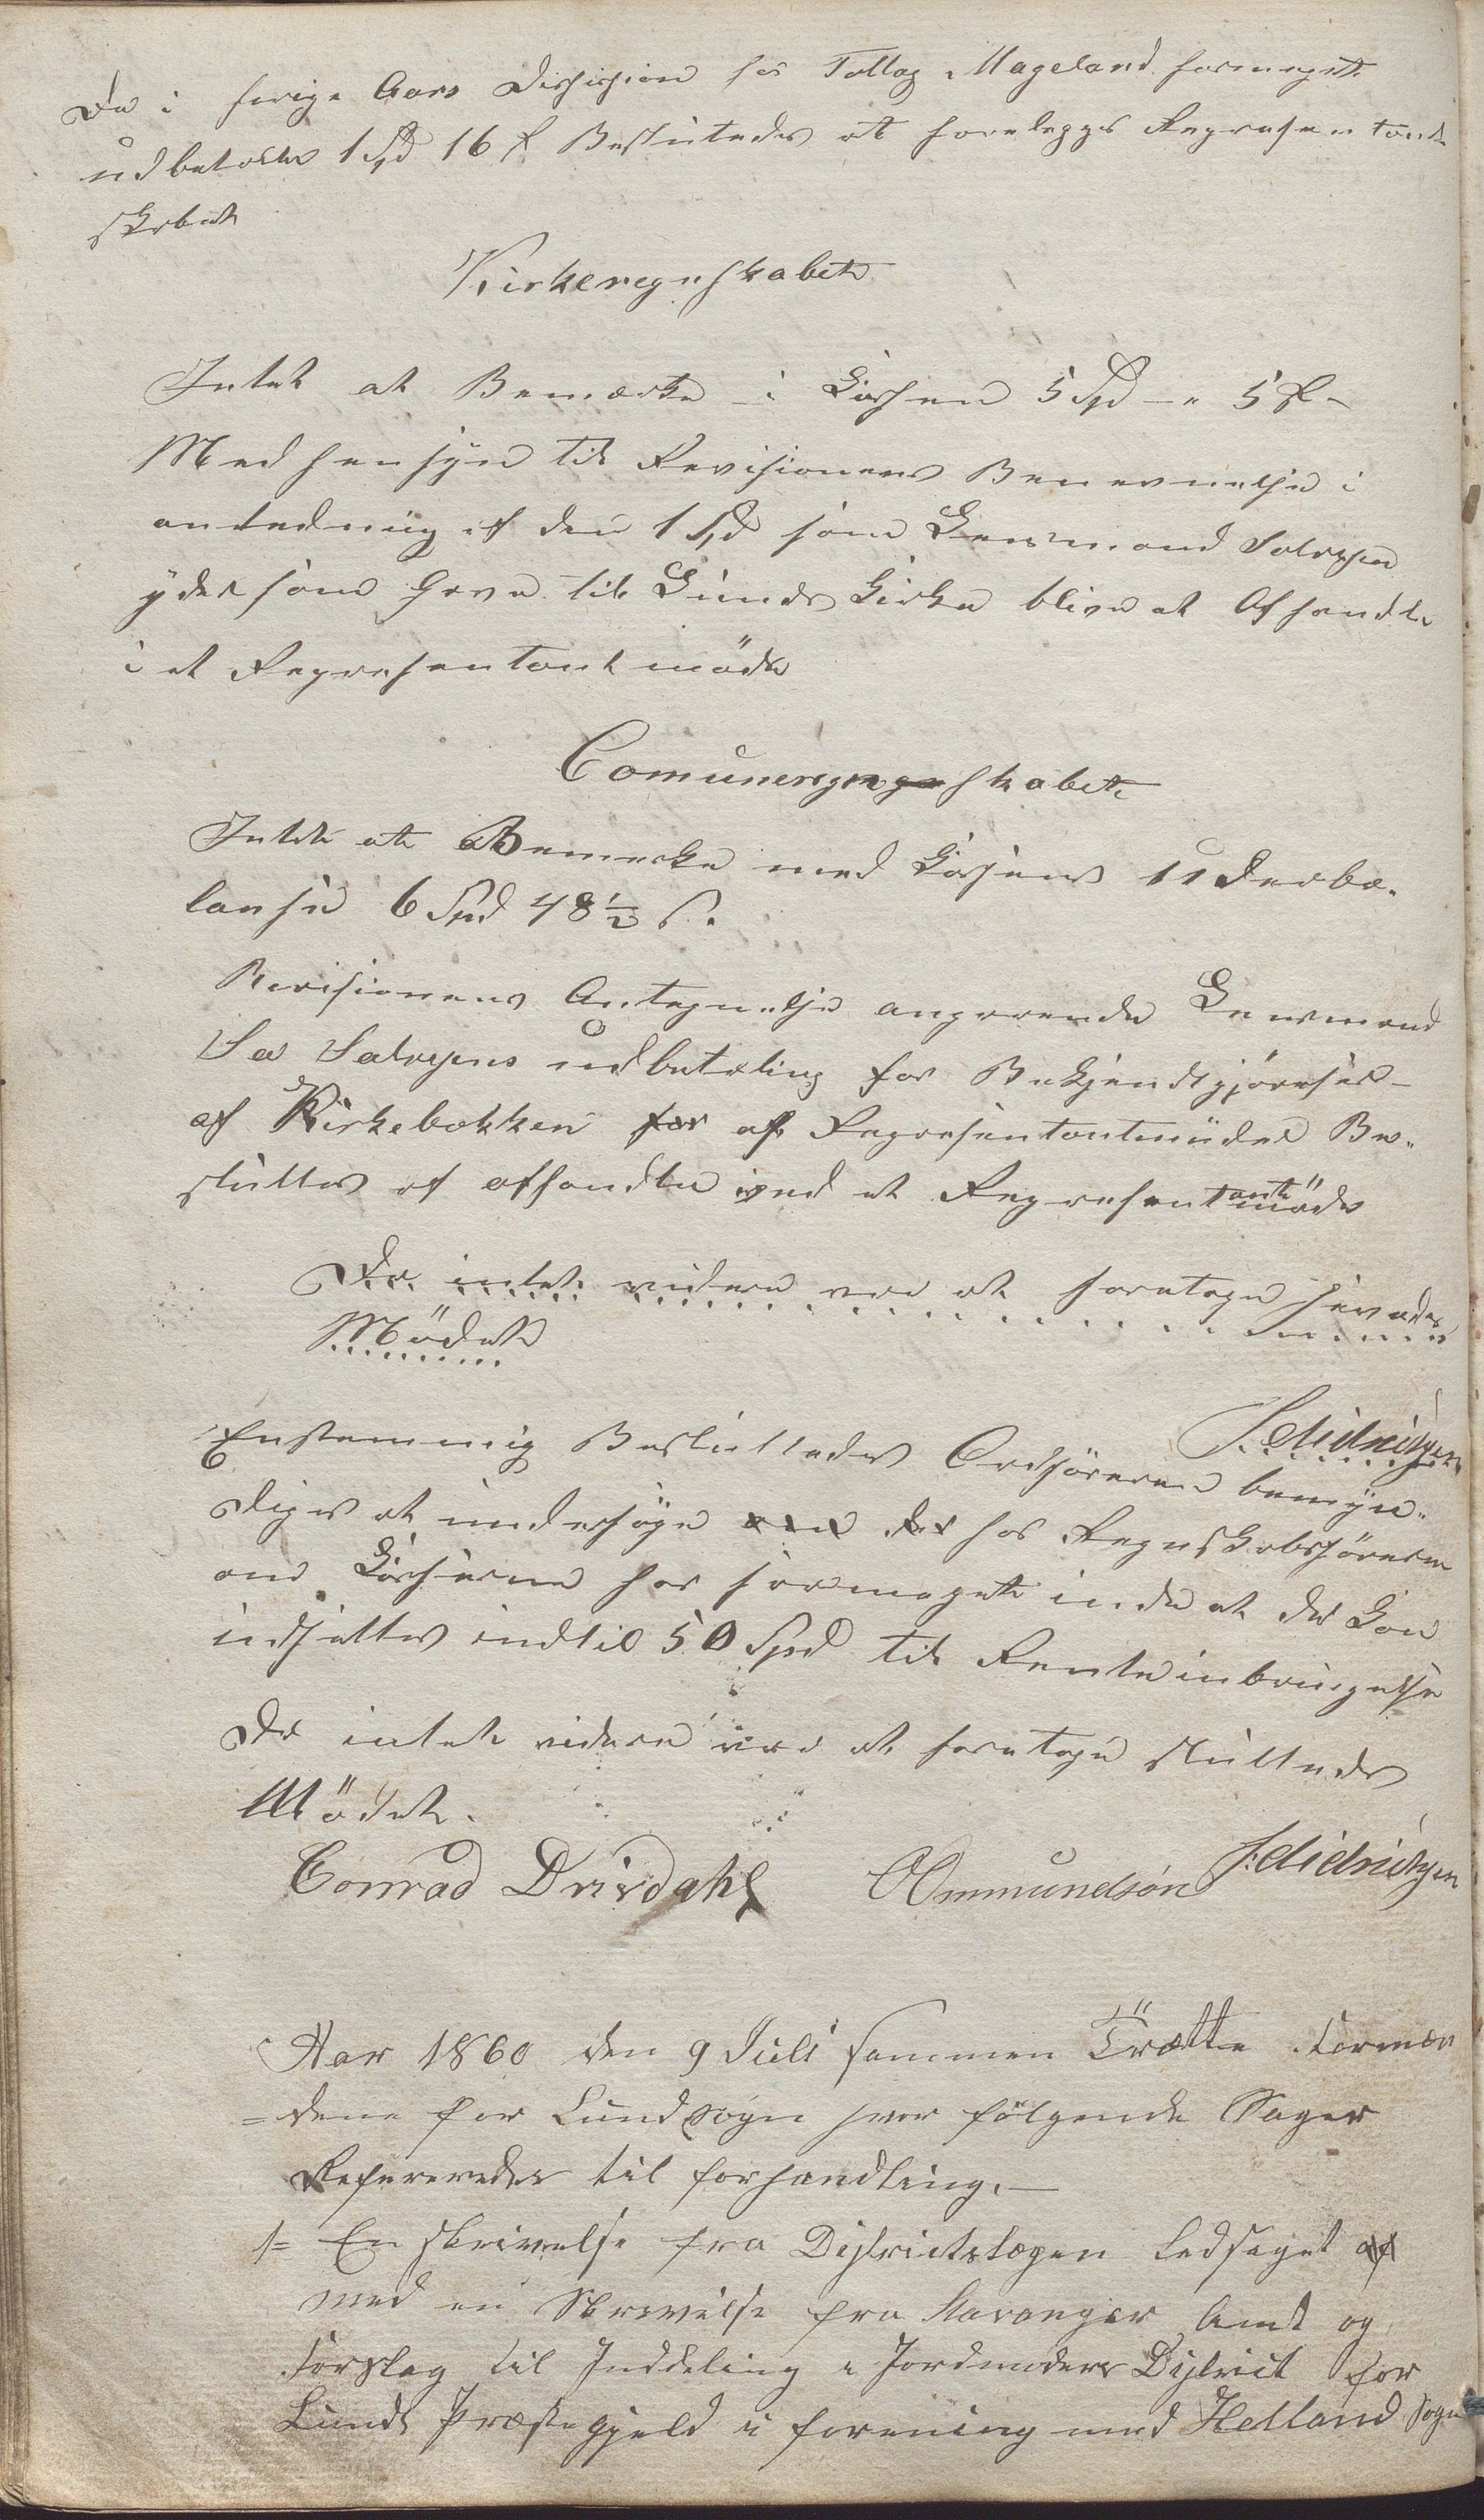 Da i forige Aars Desision for Tollag Mageland formeget
udbetalte 1 Spd 16 s Beslutedes at forelegges Represantant
skabet
Kirkeregnskabet
Intet at Bemærke i Cassen 5 Spd - " 5 s -
Med hensyn til Revisionens Benevnelse i
anledning af den 1 Spd som Lensmand Salvesen
yder som Gave til Lunds Kirke blive at Afhandle
i et Represantant møde
Comuneregnskabet
Intet at Bemerke med Cassens Underba-
lanse 6 Spd 48 ½ s.
Revisionens Antegnelse angaaende Lensmand
Salvesens udbetaling for Bekjendtgjørelse
af Kirkebakken for af Represantantmødet Be-
sluttes at afhandle ved et Represantantmøde
Da intet videre var at foretage hævedes
Mødet
J. Didriksen
Enstemmig Besluttedes Ordføreren bemyn-
diges at undersøge om der hos Regnskabsføreren
om Casserne har formeget inde at det Kan
indsettes indtil 50 Spd til Renteinbringelse
Da intet videre var at foretage sluttedes
Mødet.
Conrad Drivdahl OOmmundsøn J. Didriksen
Aar 1860 den 9 Juli sammen Trædte Formæn
= dene for Lund Sogn hvor følgende Sager
Refereredes til forhandling. —
1= En skrivelse fra Districtslægen Ledsaget af
med en Skrivelse fra Stavanger Amt og
Forslag til Inddeling i Jordmoders District for
Lunds Præstegjeld i forening med Helland Sogn